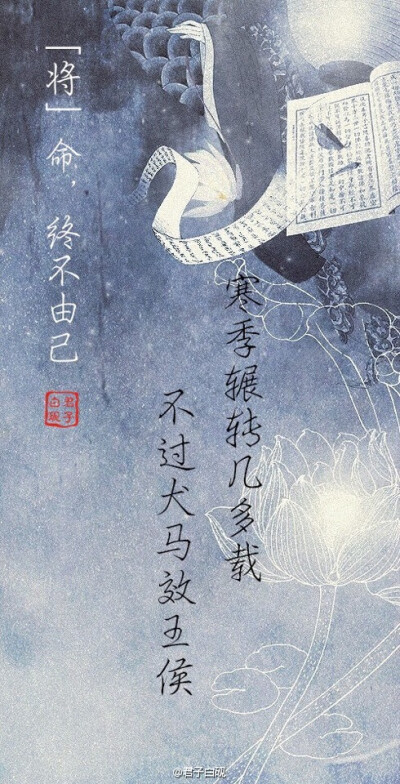 「将」命，终不由己
君子白砚
寒季辗转几多载
不过犬马效王侯
@君子白砚